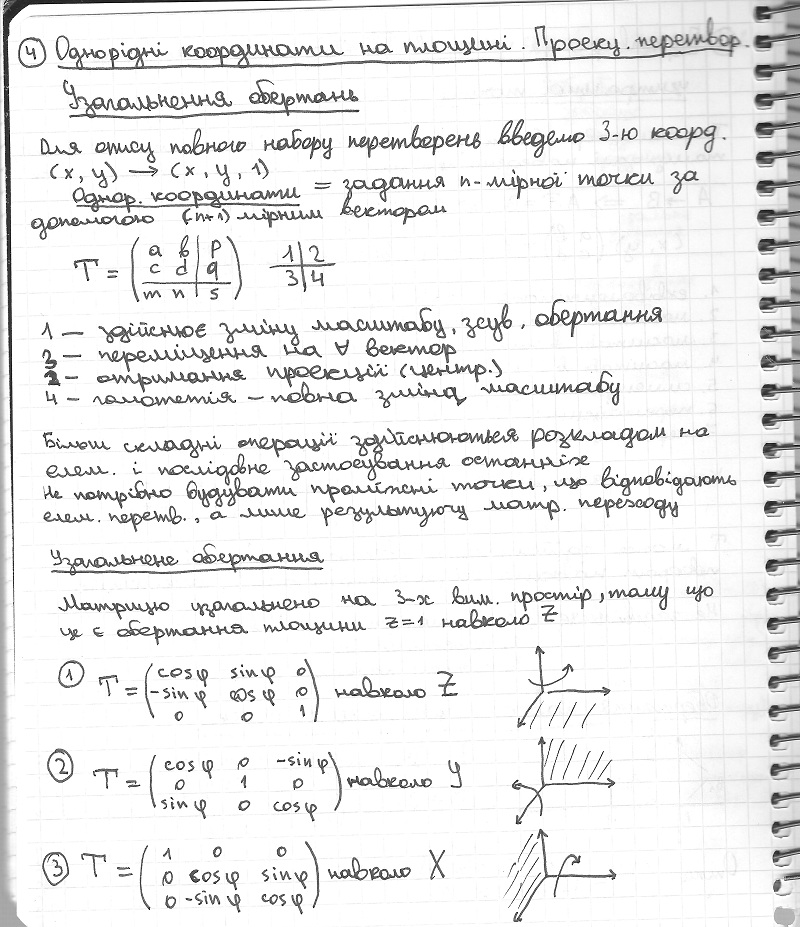 4 Однорідні координати на площині. Проєку. перетвор.
Узагальнення обертань
Для опису повного набору перетворень введемо 3-ю коорд.
(x, y) → (x, y, 1)
Однор. координати = задання n-мірної точки за
допомогою (n+1) мірним вектором
T = ( a b | p
c d | q
m n | s )
1 | 2
3 | 4
1 – здійснює зміну масштабу, зсув, обертання
3 – переміщення на ∀ вектор
2 – отримання проєкцій (центр.)
4 – гомотетія – повна зміна масштабу
Більш складні операції здійснюються розкладом на
елем. і послідовне застосування останніх
Не потрібно будувати проміжні точки, що відповідають
елем. перетв., а лише результуючу матр. переходу
Узагальнене обертання
Матрицю узагальнено на 3-х вим. простір, тому що
це є обертання площини z=1 навколо Z
1 T = ( cosφ sinφ 0
-sinφ cosφ 0
0 0 1 ) навколо Z
2 T = ( cosφ 0 -sinφ
0 1 0
sinφ 0 cosφ ) навколо Y
3 T = ( 1 0 0
0 cosφ sinφ
0 -sinφ cosφ ) навколо X